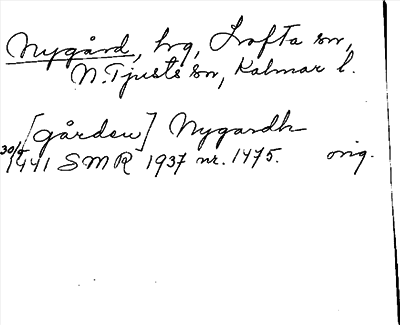 Nygård, hg, Lofta sn,
N. Tjusts sn, Kalmar l.
[gården] Nygardh
30/5 1441 SMR 1937 nr. 1475. orig.